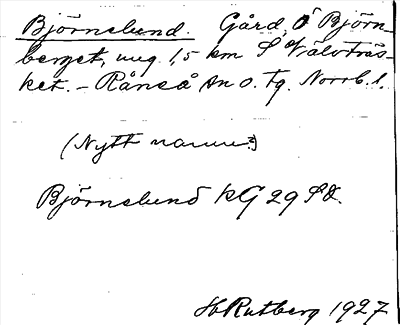 Björnelund. Gård, Ö Björn-
berget, ung 1,5 km S Välvträs-
ket. - Råneå sn o. tg. Norrb. l.
(Nytt namn?)
Björnelund KG 29 SO.
H Rutberg 1927